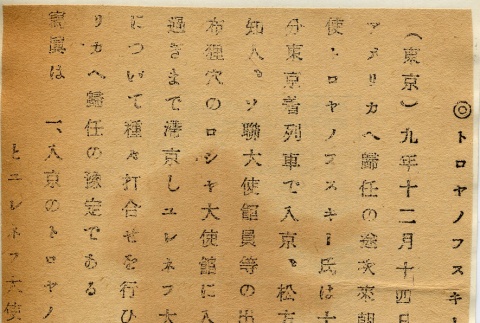 ◎トロヤノフスキー
(東京)九年十二月十四日
アメリカへ歸任の途次來朝
使トロヤノフスキー氏は十
分東京着列車で入京、松方
知人、ソ聯大使館員等の出
布狸穴のロシヤ大使館に入
過ぎまで滯京しユレネフ大
について種々打合せを行ひ
リカへ歸任の豫定である
寫眞は 一、入京のトロヤノ
とユレネフ大使